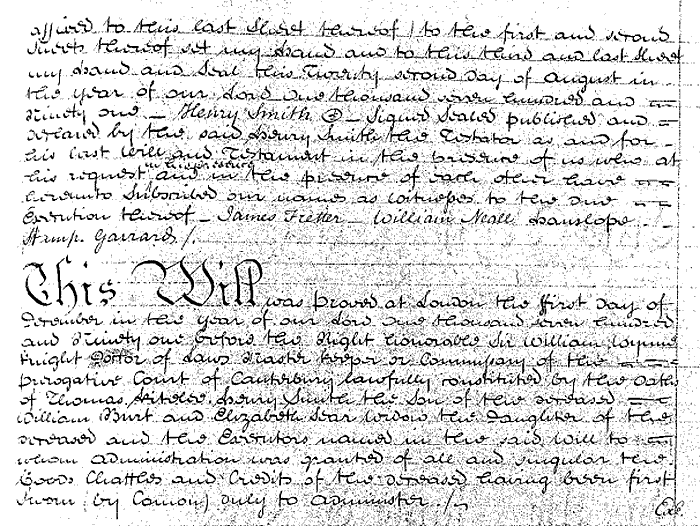 affixed to this last Sheet thereof / to the first and second
Sheets thereof set my Hand and to this third and last Sheet
my Hand and Seal this Twenty second day of August in
the year of our Lord One thousand seven hundred and
Ninety one _ Henry Smith _ Signed Sealed published and
declared by the said Henry Smith the Testator as and for
his last Will and Testament in the presence of us who at
his request and in the presence of each other have
hereunto Subscribed our names as Witnesses to the due
Execution thereof _ James _ William Neall Hanslope
Stamp. Garrard /.
This Will was proved at London the first day of
December in the year of our Lord One thousand seven hundred
and Ninety one before the Right honorable Sir William Wynne
Knight Doctor of Laws Master Keeper or Commissary of the
Prerogative Court of Canterbury lawfully constituted by the Oaths
of Thomas Henry Smith the Son of the deceased
William Burt and Elizabeth Widow the Daughter of the
deceased and the Executors named in the said Will to
whom Administration was granted of all and singular the
Goods Chattles and Credits of the deceased having been first
Sworn (by Comon) duly to Administer ./